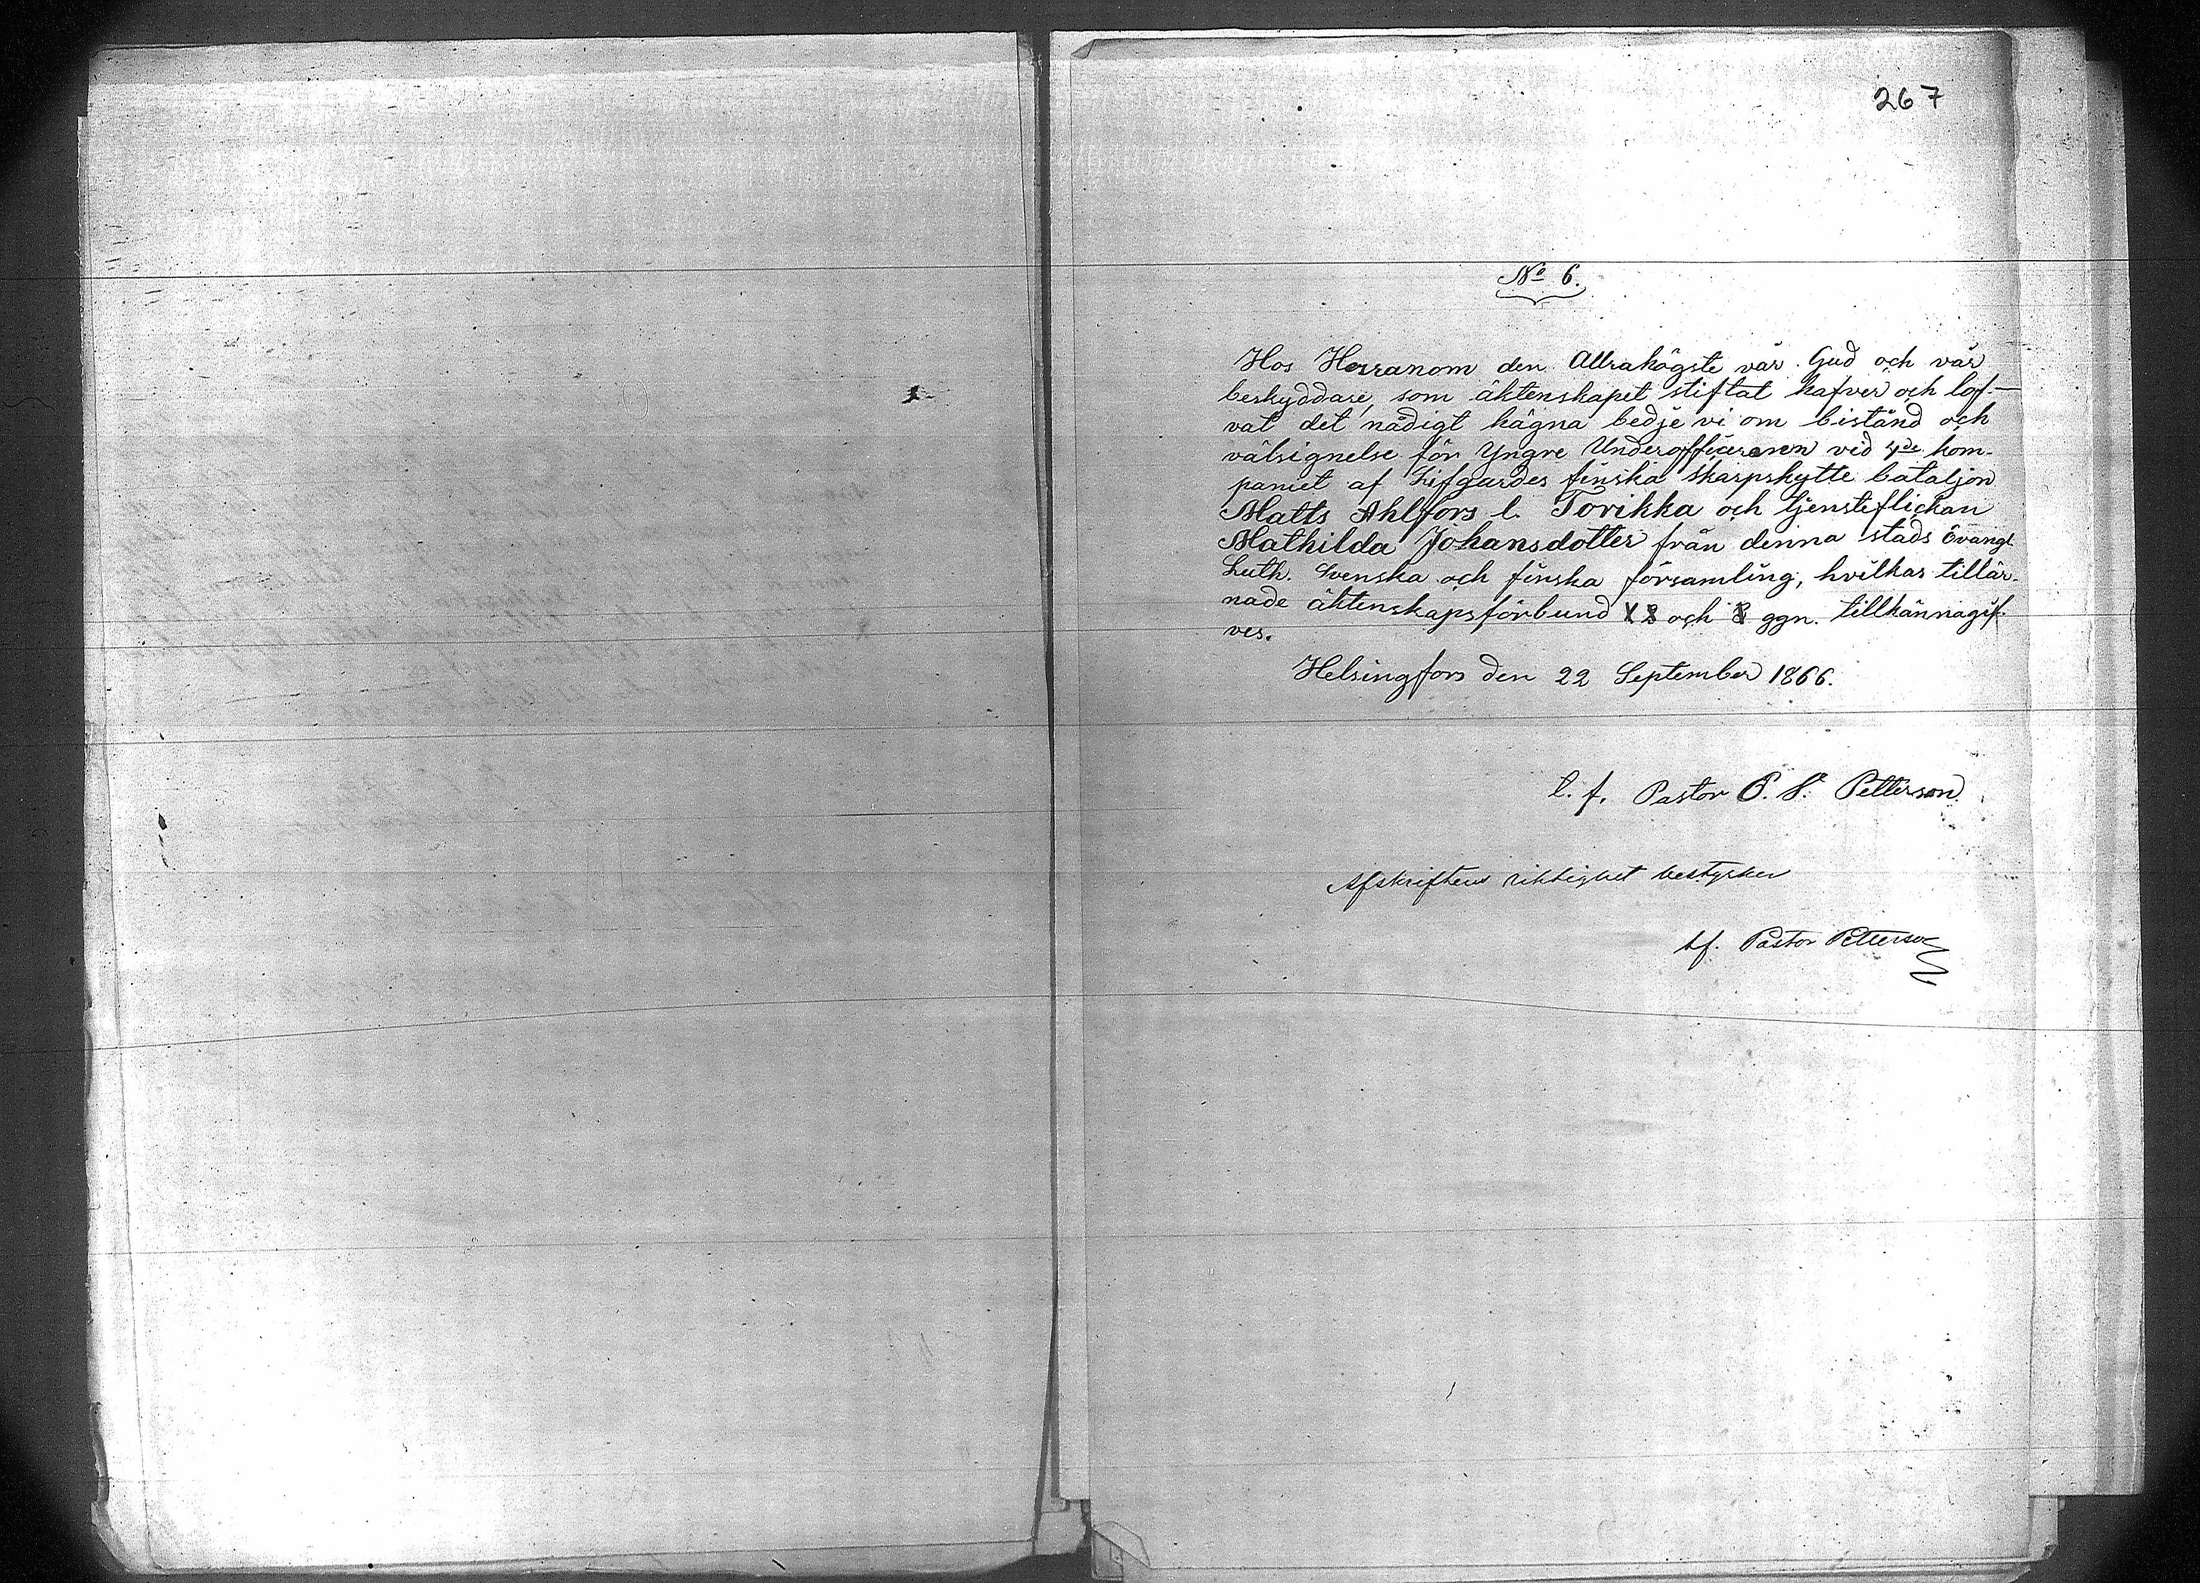 267
No 6.
Hos Herranom den Allrahögste vår Gud och vår
beskyddare, som äktenskapet stiftat hafver och lof-
vat det nådigt hägna bedje vi om bistånd och
välsignelse för Yngre Underofficeraren vid 4de kom-
paniet af Lifgardes finska skarpskytte bataljon
Matts Ahlfors l. Torikka och tjensteflickan
Mathilda Johansdotter från denna stads Evangl.
Luth. Svenska och finska församling, hvilkas tillär-
nade äktenskapsförbund och ggn. tillkännagif-
ves.
Helsingfors den 22 September 1866.
t. f. Pastor P. S. Petterson.
Afskriftens riktighet bestyrker
tf. Pastor Petterson